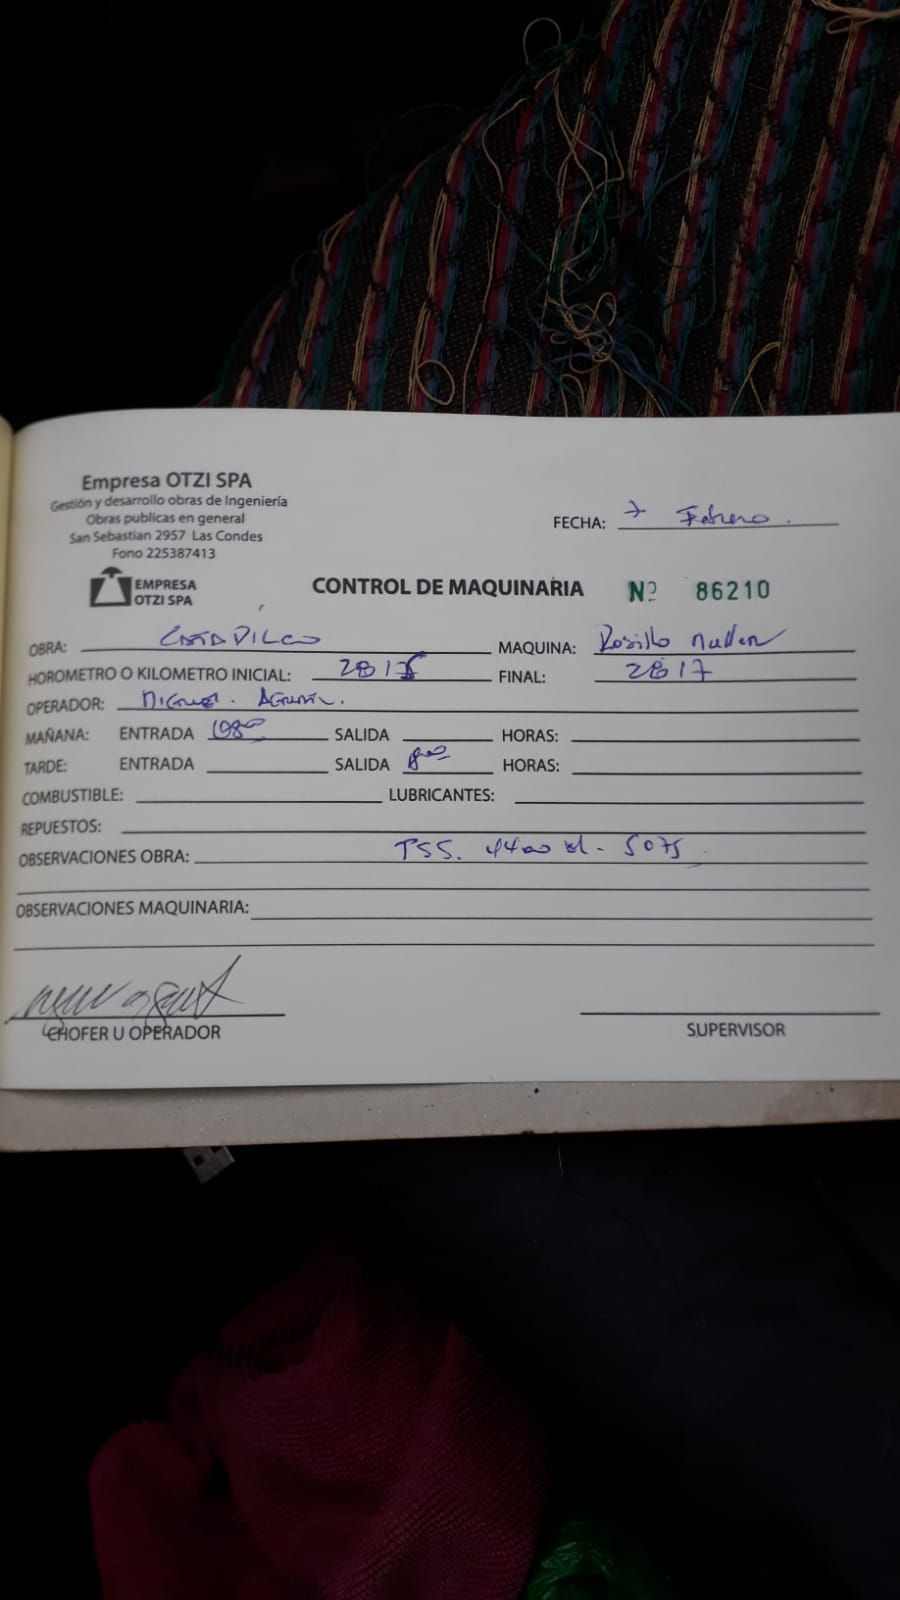 Empresa OTZI SPA
Gestión y desarrollo obras de Ingeniería
Obras publicas en general
San Sebastian 2957 Las Condes
Fono 225387413
EMPRESA
OTZI SPA
FECHA: 7 Febrero.
CONTROL DE MAQUINARIA Nº 86210
OBRA: MAQUINA: Rodillo
HOROMETRO O KILOMETRO INICIAL: FINAL: 2817
OPERADOR: Miguel.
MAÑANA: ENTRADA SALIDA HORAS:
TARDE: ENTRADA SALIDA 8⁰⁰ HORAS:
COMBUSTIBLE: LUBRICANTES:
REPUESTOS:
OBSERVACIONES OBRA: TSS. 4400 al - 5075
OBSERVACIONES MAQUINARIA:
CHOFER U OPERADOR SUPERVISOR